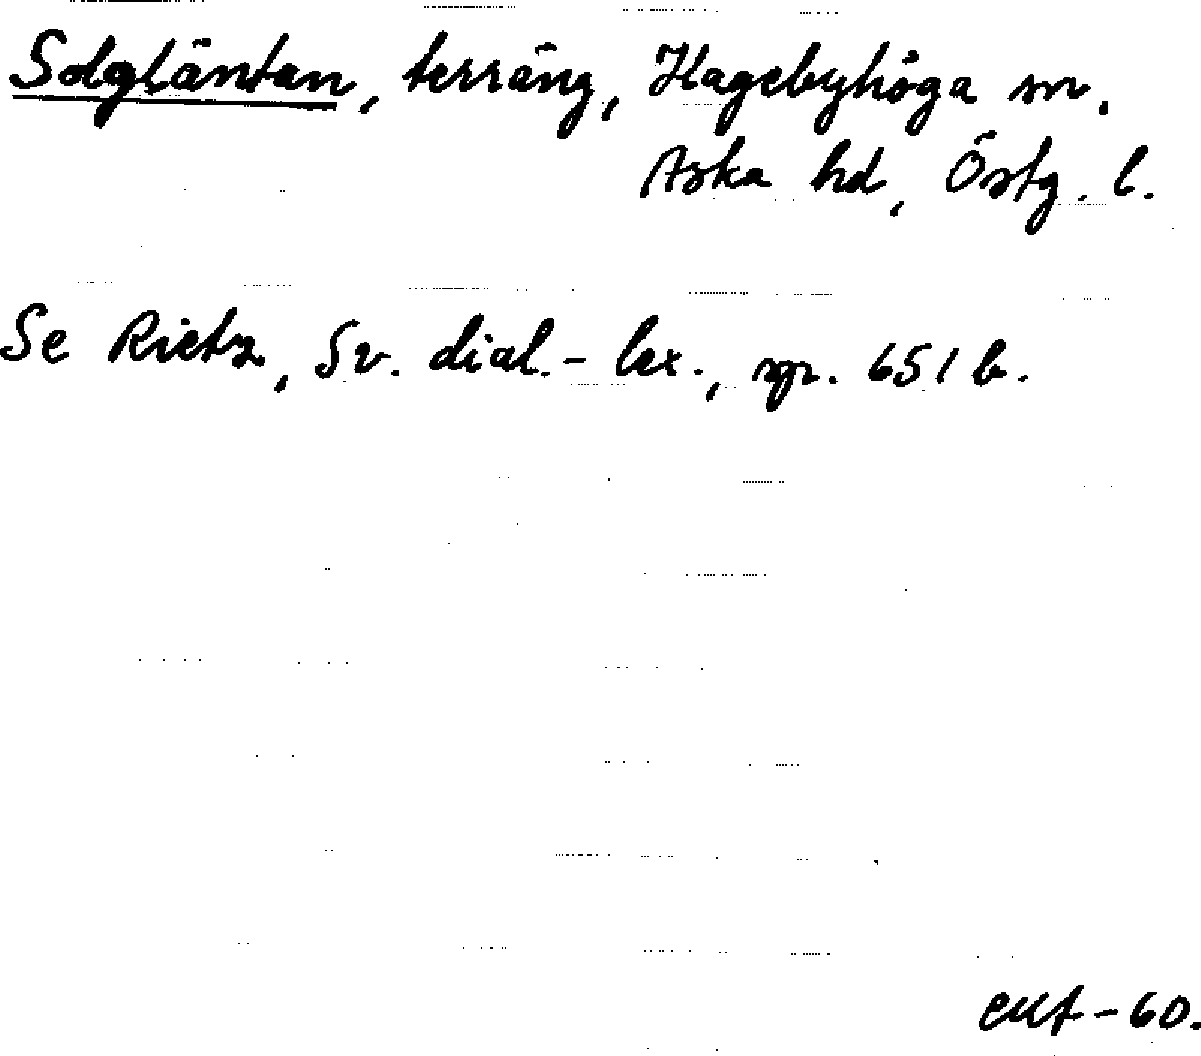 Solgläntan, terräng, Hagebyhöga sn.
Aska hd, Östg. l.
Se Rietz, Sv. dial.-lex., sp. 651 b.
-60.